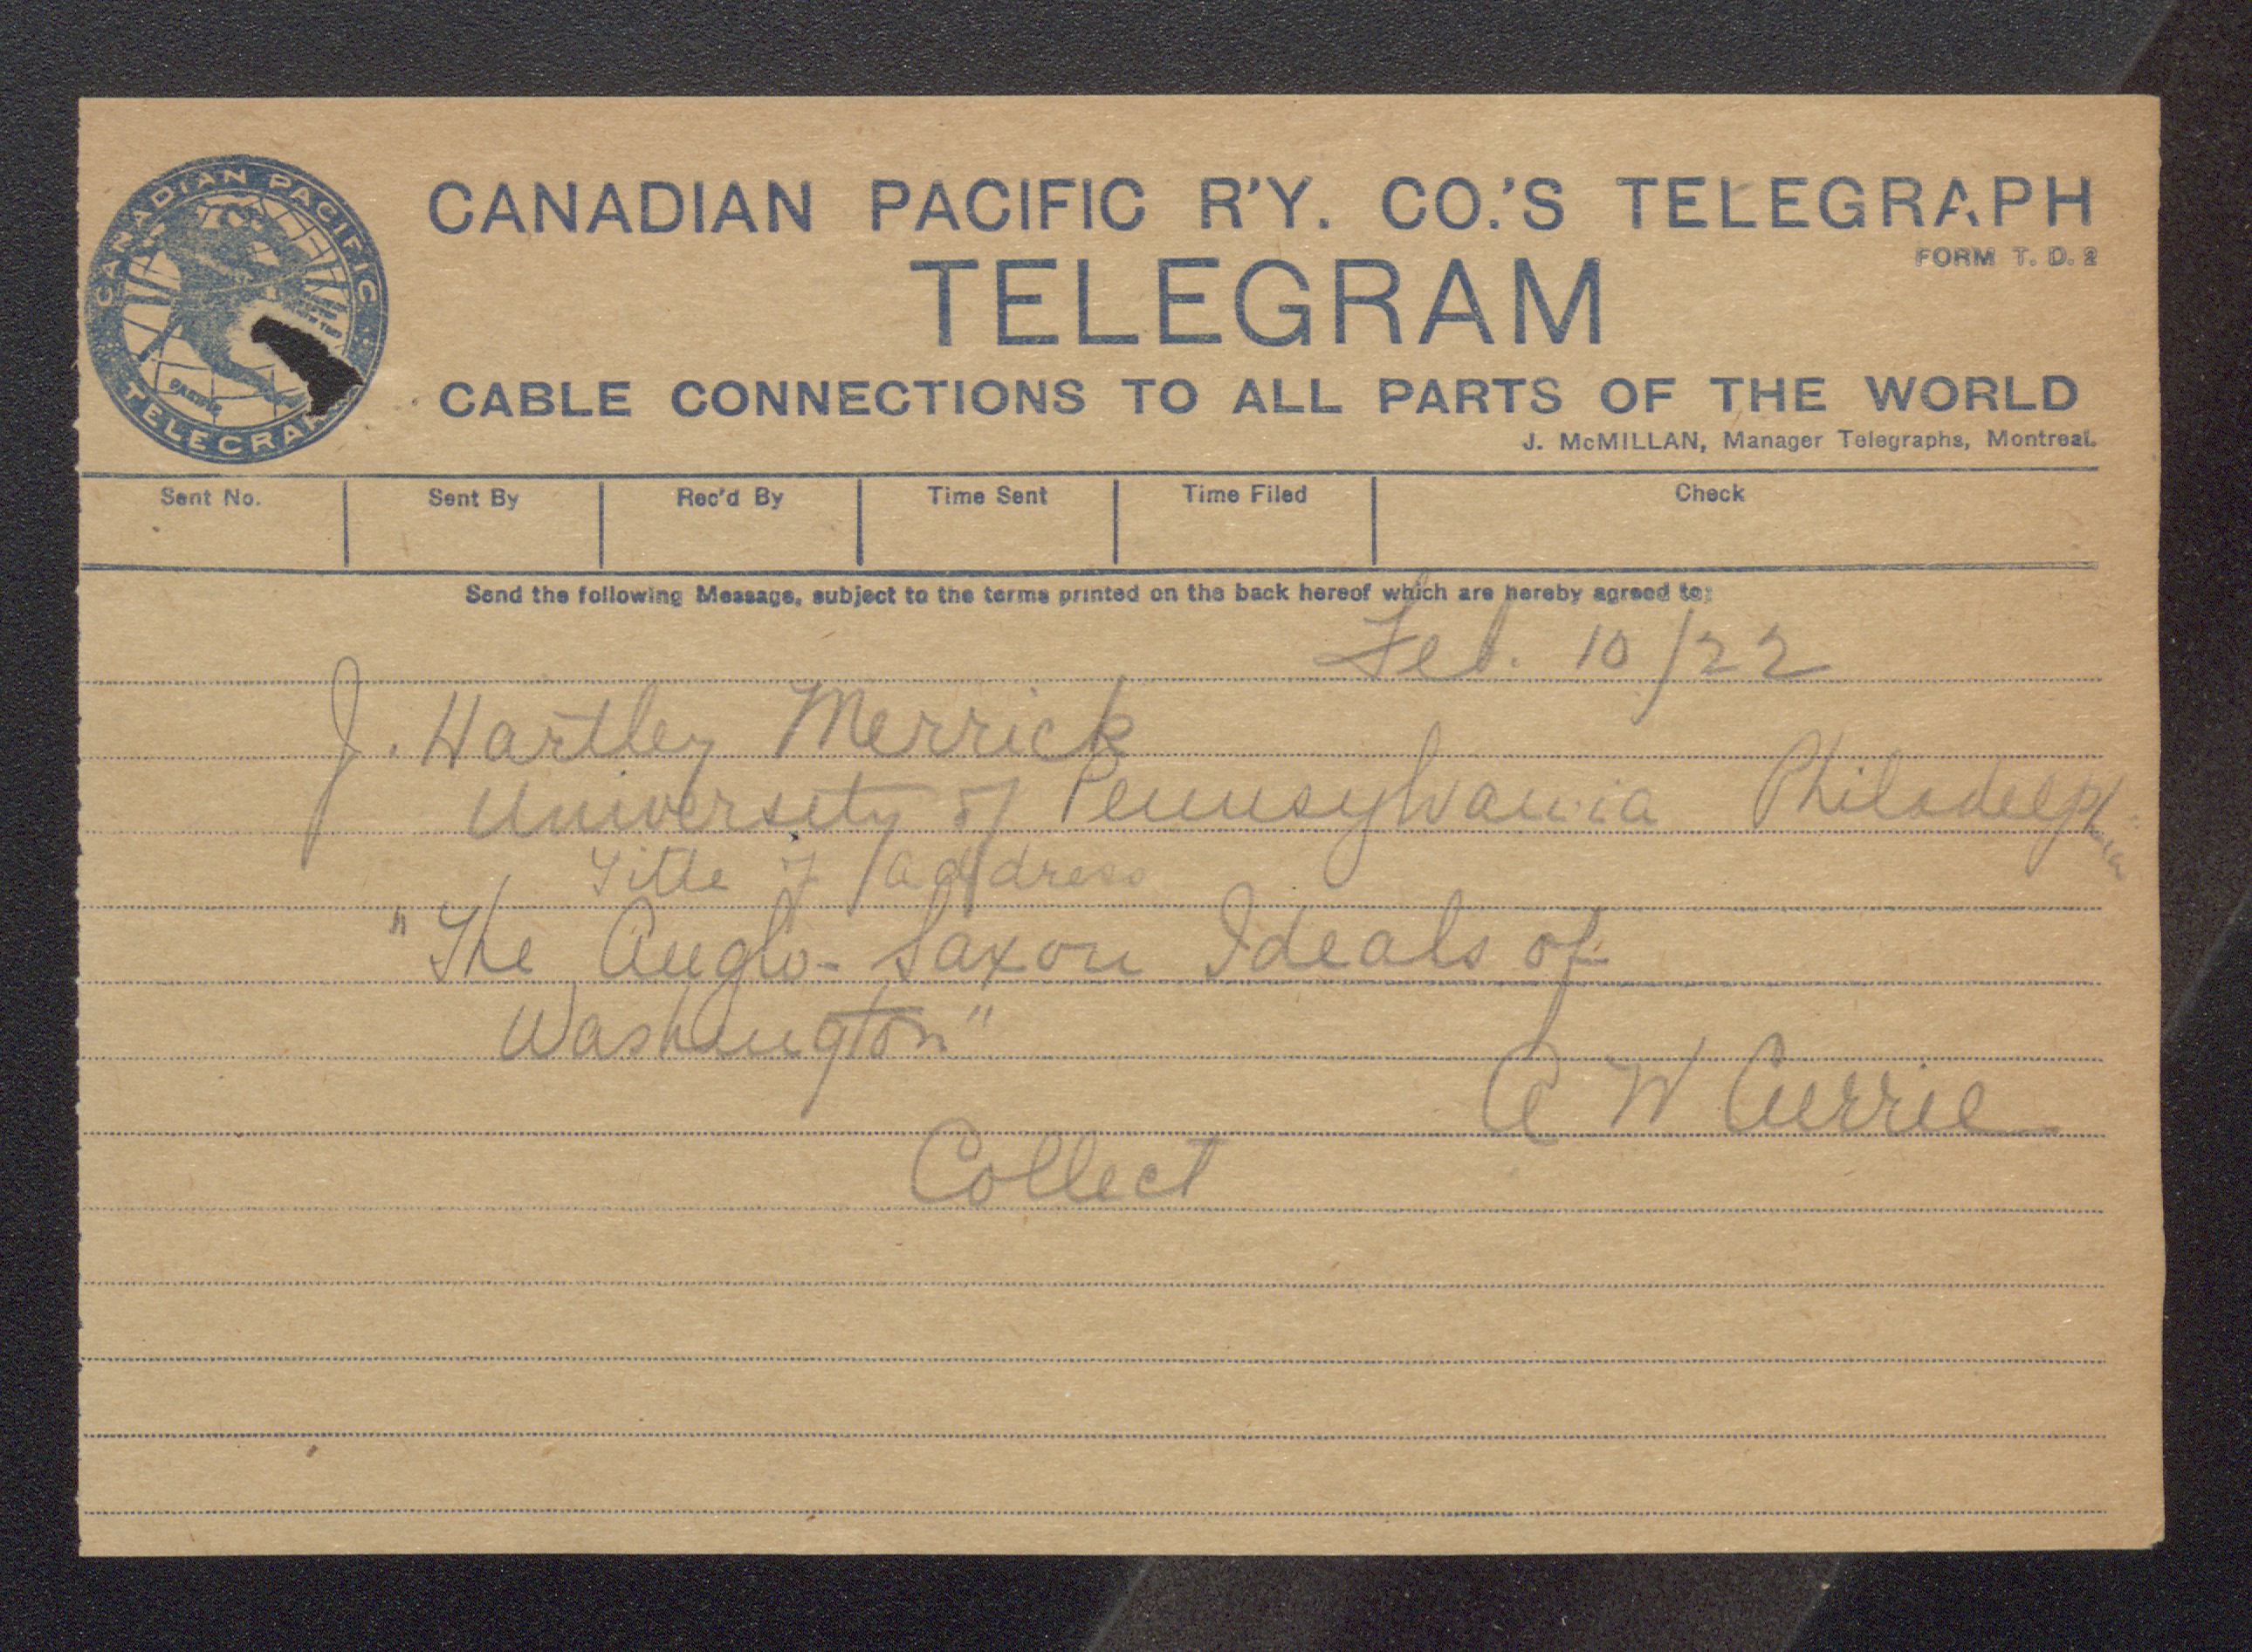 CANADIAN PACIFIC
TELEGRAPH
PACIFIC
CANADIAN PACIFIC R'Y. CO.'S TELEGRAPH
FORM T. D. 2
TELEGRAM
CABLE CONNECTIONS TO ALL PARTS OF THE WORLD
J. McMILLAN, Manager Telegraphs, Montreal.
Sent No. Sent By Rec'd By Time Sent Time Filed Check
Send the following Message, subject to the terms printed on the back hereof which are hereby agreed to:
Feb. 10/22
J. Hartley Merrick
University of Pennsylvania Philadelphia
Title of address
"The Anglo-Saxon Ideals of
Washington"
A W Currie
Collect